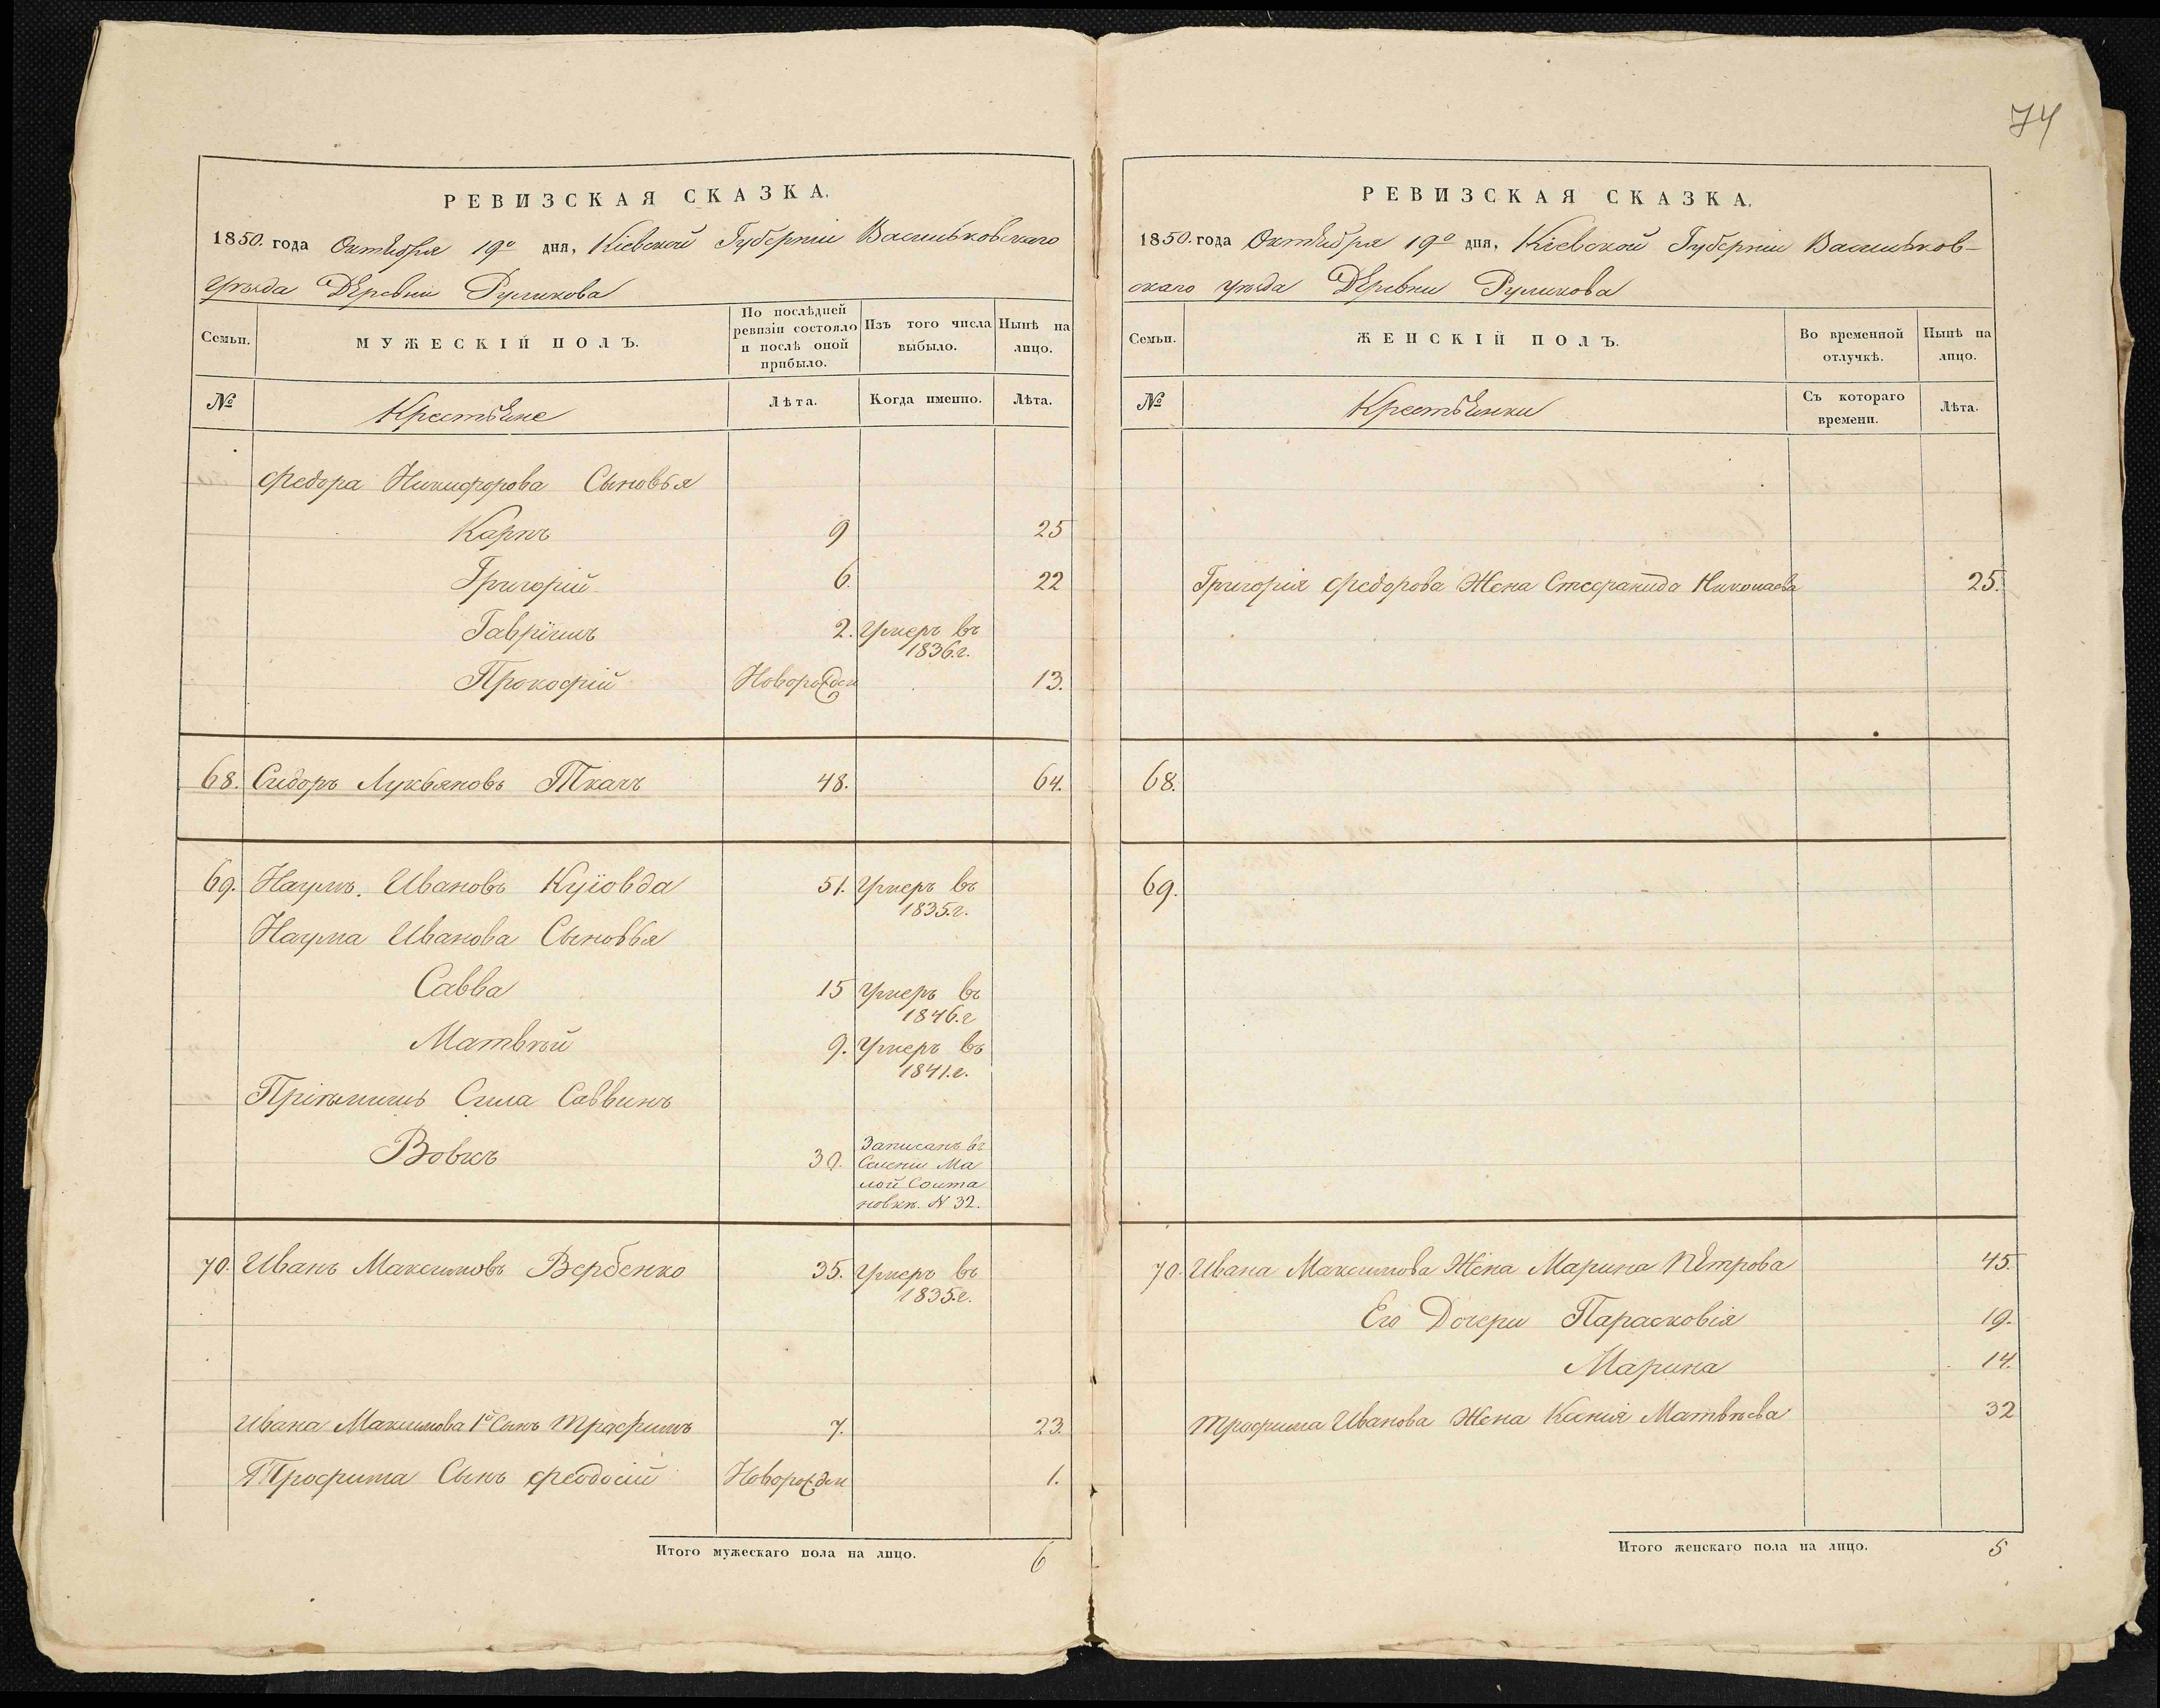 74
РЕВИЗСКАЯ СКАЗКА.
1850. года Октября 19го дня, Кіевской Губерніи Васильковскаго
Уѣзда Деревни Руликова
Семьи.
МУЖЕСКІЙ ПОЛЪ.
По послѣдней ревизіи состояло и послѣ оной прибыло.
Изъ того числа выбыло.
Нынѣ на лицо.
№ Крестьяне Лѣта. Когда именно. Лѣта.
Федора Никифорова Сыновья
Карпъ 9 25
Григорій 6. 22
Гавріилъ 2. Умеръ въ
1836.г.
Прокофій Новорожден 13.
68. Сидоръ Лукьяновъ Ткачъ 48. 64.
69. Наумъ Ивановъ Куіовда 51. Умеръ въ
1835.г.
Наума Иванова Сыновья
Савва 15 Умеръ въ
1846.г
Матвѣй 9. Умеръ въ
1841.г.
Пріемышъ Сила Саввинъ
Вовкъ 30. Записанъ въ
Селеніи Ма
лой Солта
новкѣ. N 32.
70. Иванъ Максимовъ Вербенко 35. Умеръ въ
1835.г.
Ивана Максимова 1й Сынъ Трофимъ 7. 23.
Трофима Сынъ Феодосій Новорожден 1.
Итого мужескаго пола на лицо. 6
РЕВИЗСКАЯ СКАЗКА.
1850. года Октября 19го дня, Кіевской Губерніи Васильков-
скаго уѣзда Деревни Руликова
Семьи.
ЖЕНСКІЙ ПОЛЪ.
Во временной отлучкѣ.
Нынѣ на лицо.
№ Крестьянки Съ котораго времени. Лѣта.
Григорія Федорова Жена Стефанида Николаева 25.
68.
69.
70. Ивана Максимова Жена Марина Петрова 45.
Его Дочери Парасковія 19.
Марина 14.
Трофима Иванова Жена Ксенія Матвѣева 32
Итого женскаго пола на лицо. 5